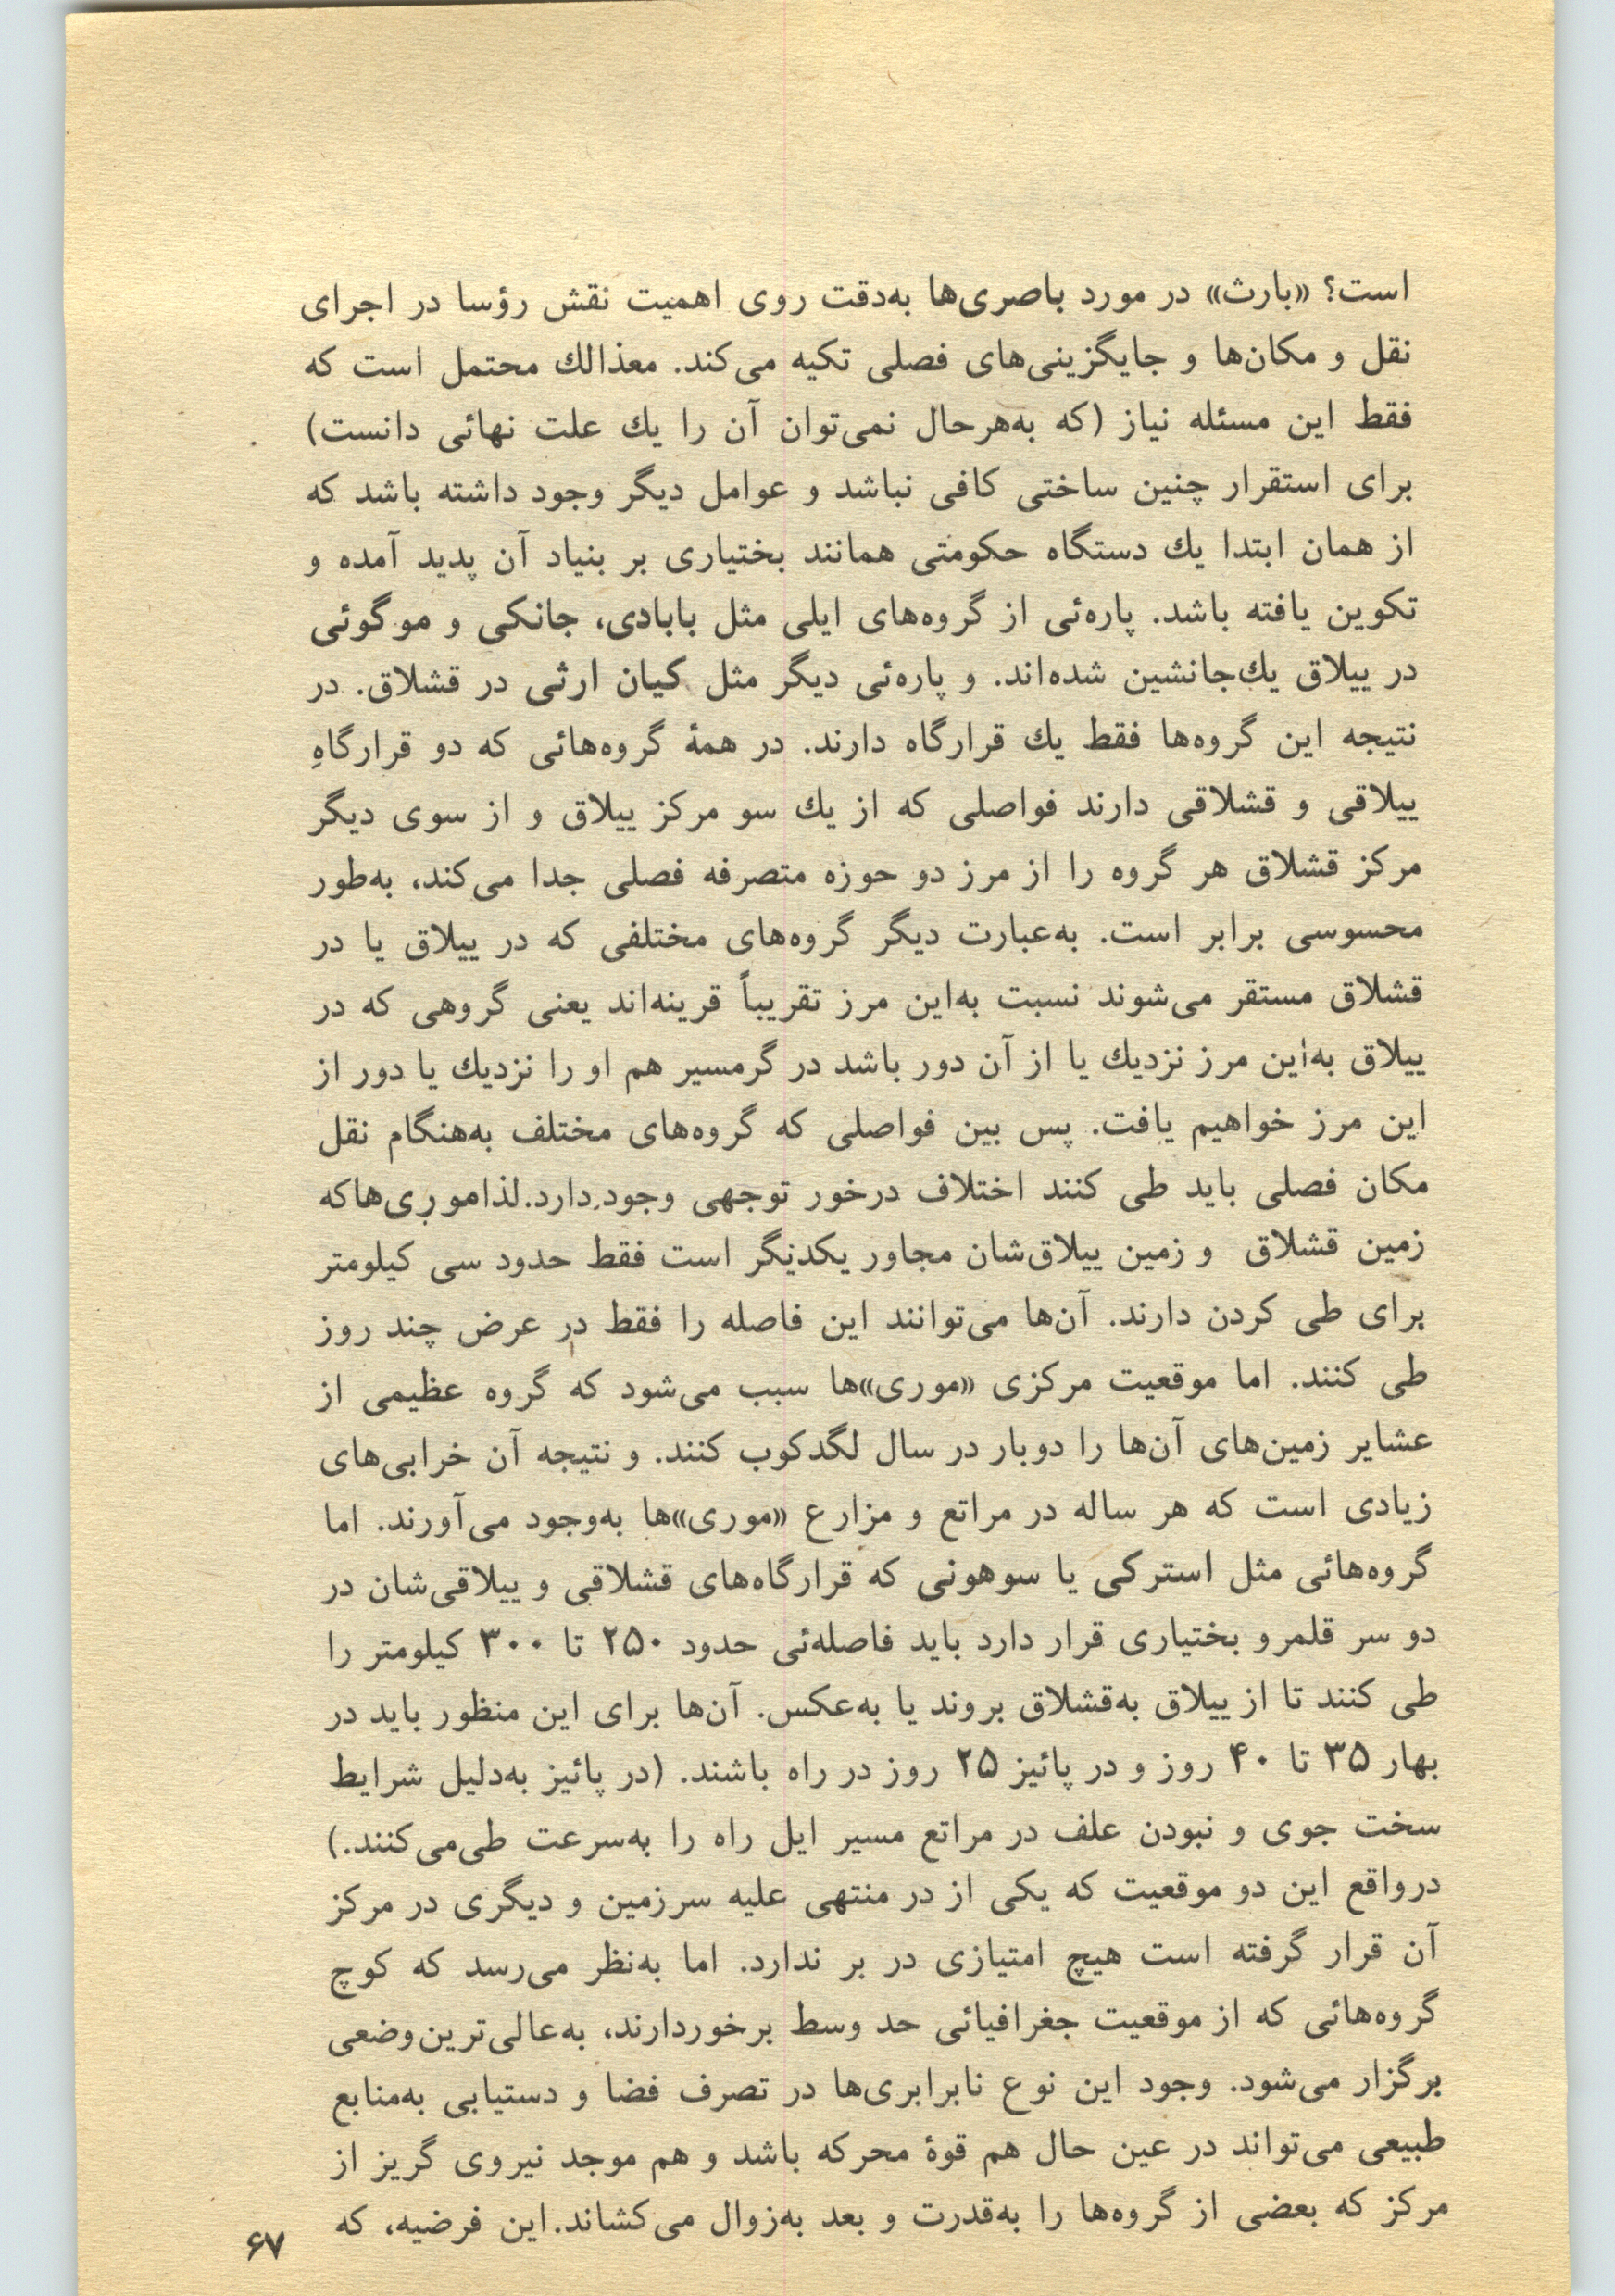 است؟ «بارث» در مورد باصری‌ها به‌دقت روی اهمیت نقش رؤسا در اجرای
نقل و مکان‌ها و جایگزینی‌های فصلی تکیه می‌کند. معذالك محتمل است که
فقط این مسئله نیاز (که به‌هرحال نمی‌توان آن را یك علت نهائی دانست)
برای استقرار چنین ساختی کافی نباشد و عوامل دیگر وجود داشته باشد که
از همان ابتدا یك دستگاه حکومتی همانند بختیاری بر بنیاد آن پدید آمده و
تکوین یافته باشد. پاره‌ئی از گروه‌های ایلی مثل بابادی، جانکی و موگوئی
در ییلاق یك‌جانشین شده‌اند. و پاره‌ئی دیگر مثل کیان ارثی در قشلاق. در
نتیجه این گروه‌ها فقط یك قرارگاه دارند. در همهٔ گروه‌هائی که دو قرارگاهِ
ییلاقی و قشلاقی دارند فواصلی که از یك سو مرکز ییلاق و از سوی دیگر
مرکز قشلاق هر گروه را از مرز دو حوزه متصرفه فصلی جدا می‌کند، به‌طور
محسوسی برابر است. به‌عبارت دیگر گروه‌های مختلفی که در ییلاق یا در
قشلاق مستقر می‌شوند نسبت به‌این مرز تقریباً قرینه‌اند یعنی گروهی که در
ییلاق به‌این مرز نزدیك یا از آن دور باشد در گرمسیر هم او را نزدیك یا دور از
این مرز خواهیم یافت. پس بین فواصلی که گروه‌های مختلف به‌هنگام نقل
مکان فصلی باید طی کنند اختلاف درخور توجهی وجود دارد. لذا موری‌ها که
زمین قشلاق و زمین ییلاق‌شان مجاور یکدیگر است فقط حدود سی کیلومتر
برای طی کردن دارند. آن‌ها می‌توانند این فاصله را فقط در عرض چند روز
طی کنند. اما موقعیت مرکزی «موری»ها سبب می‌شود که گروه عظیمی از
عشایر زمین‌های آن‌ها را دوبار در سال لگدکوب کنند. و نتیجه آن خرابی‌های
زیادی است که هر ساله در مراتع و مزارع «موری»ها به‌وجود می‌آورند. اما
گروه‌هائی مثل استرکی یا سوهونی که قرارگاه‌های قشلاقی و ییلاقی‌شان در
دو سر قلمرو بختیاری قرار دارد باید فاصله‌ئی حدود ۲۵۰ تا ۳۰۰ کیلومتر را
طی کنند تا از ییلاق به‌قشلاق بروند یا به‌عکس. آن‌ها برای این منظور باید در
بهار ۳۵ تا ۴۰ روز و در پائیز ۲۵ روز در راه باشند. (در پائیز به‌دلیل شرایط
سخت جوی و نبودن علف در مراتع مسیر ایل راه را به‌سرعت طی‌می‌کنند.)
درواقع این دو موقعیت که یکی از در منتهی علیه سرزمین و دیگری در مرکز
آن قرار گرفته است هیچ امتیازی در بر ندارد. اما به‌نظر می‌رسد که کوچ
گروه‌هائی که از موقعیت جغرافیائی حد وسط برخوردارند، به‌عالی‌ترین‌وضعی
برگزار می‌شود. وجود این نوع نابرابری‌ها در تصرف فضا و دستیابی به‌منابع
طبیعی می‌تواند در عین حال هم قوهٔ محرکه باشد و هم موجد نیروی گریز از
مرکز که بعضی از گروه‌ها را به‌قدرت و بعد به‌زوال می‌کشاند. این فرضیه، که
۶۷